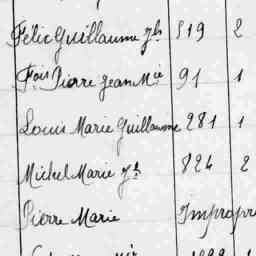 Félix Guillaume Jh 519 2
Fois Pierre Jean Mie 91 1
Louis Marie Guillaume 281 1
Michel Marie Jh 824 2
Pierre Marie Impropre